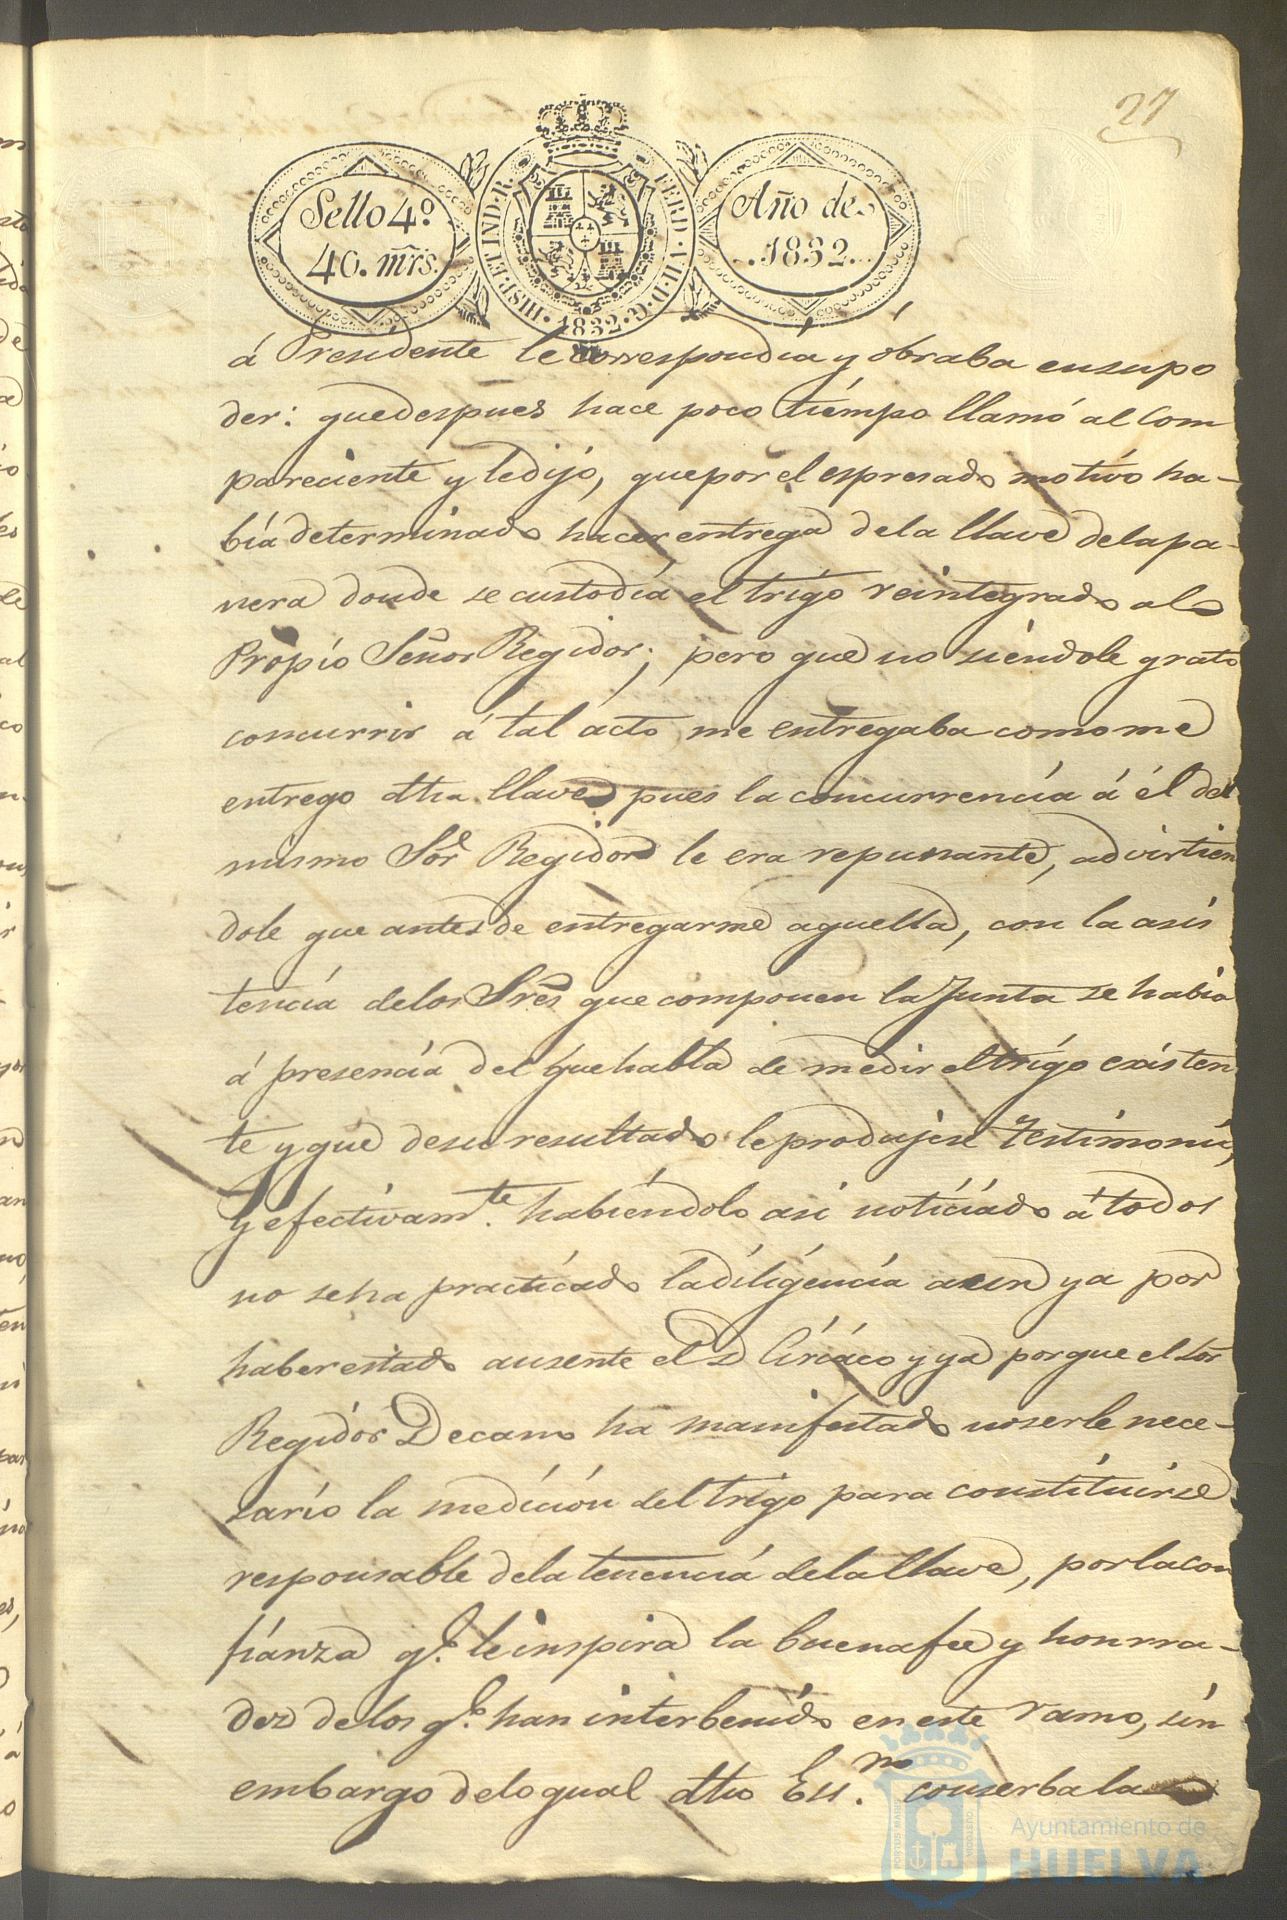 27
Sello 4º
40. mrs.
HISP. ET IND. R. FERD. VII. D. G. 1832
Año de
1832.
á Presidente le correspondía y óbraba en su po
der: que despues hace poco tiémpo llamó al Com
pareciente y le dijo, que por el espresado motivo ha-
bía determinado hacer entrega de la llave de la pa-
nera donde se custodía el trígo reintegrado al
Propío Señor Regidor; pero que no siéndole grato
concurrir á tal ácto me entregaba como me
entrego dha. llave pues la concurrencía á él del
mismo Sor. Regidor le era repunante, advirtien
dole que antes de entregarme aquella, con la asis
tencía de los Sres que componen la Junta se había
á presencía del que habla de medir el trígo exísten
te y que de su resultado le produjese Testimonío,
y efectívamte. habiéndolo asi notíciádo á todos
no se ha practícado la dilígencía aun ya por
haber estado ausente el D. Círiáco y ya porque el Sor
Regidór Decano ha manifestado no serle nece-
sarío la medición del trígo para constítuirse
responsable de la tenencía de la llave, por la con
fíanza qe. le inspira la buena fee y honrra-
dez de los qe. han interbenído en este ramo, sin
embargo de lo qual dho Essno. conserba la
Ayuntamiento de
HUELVA